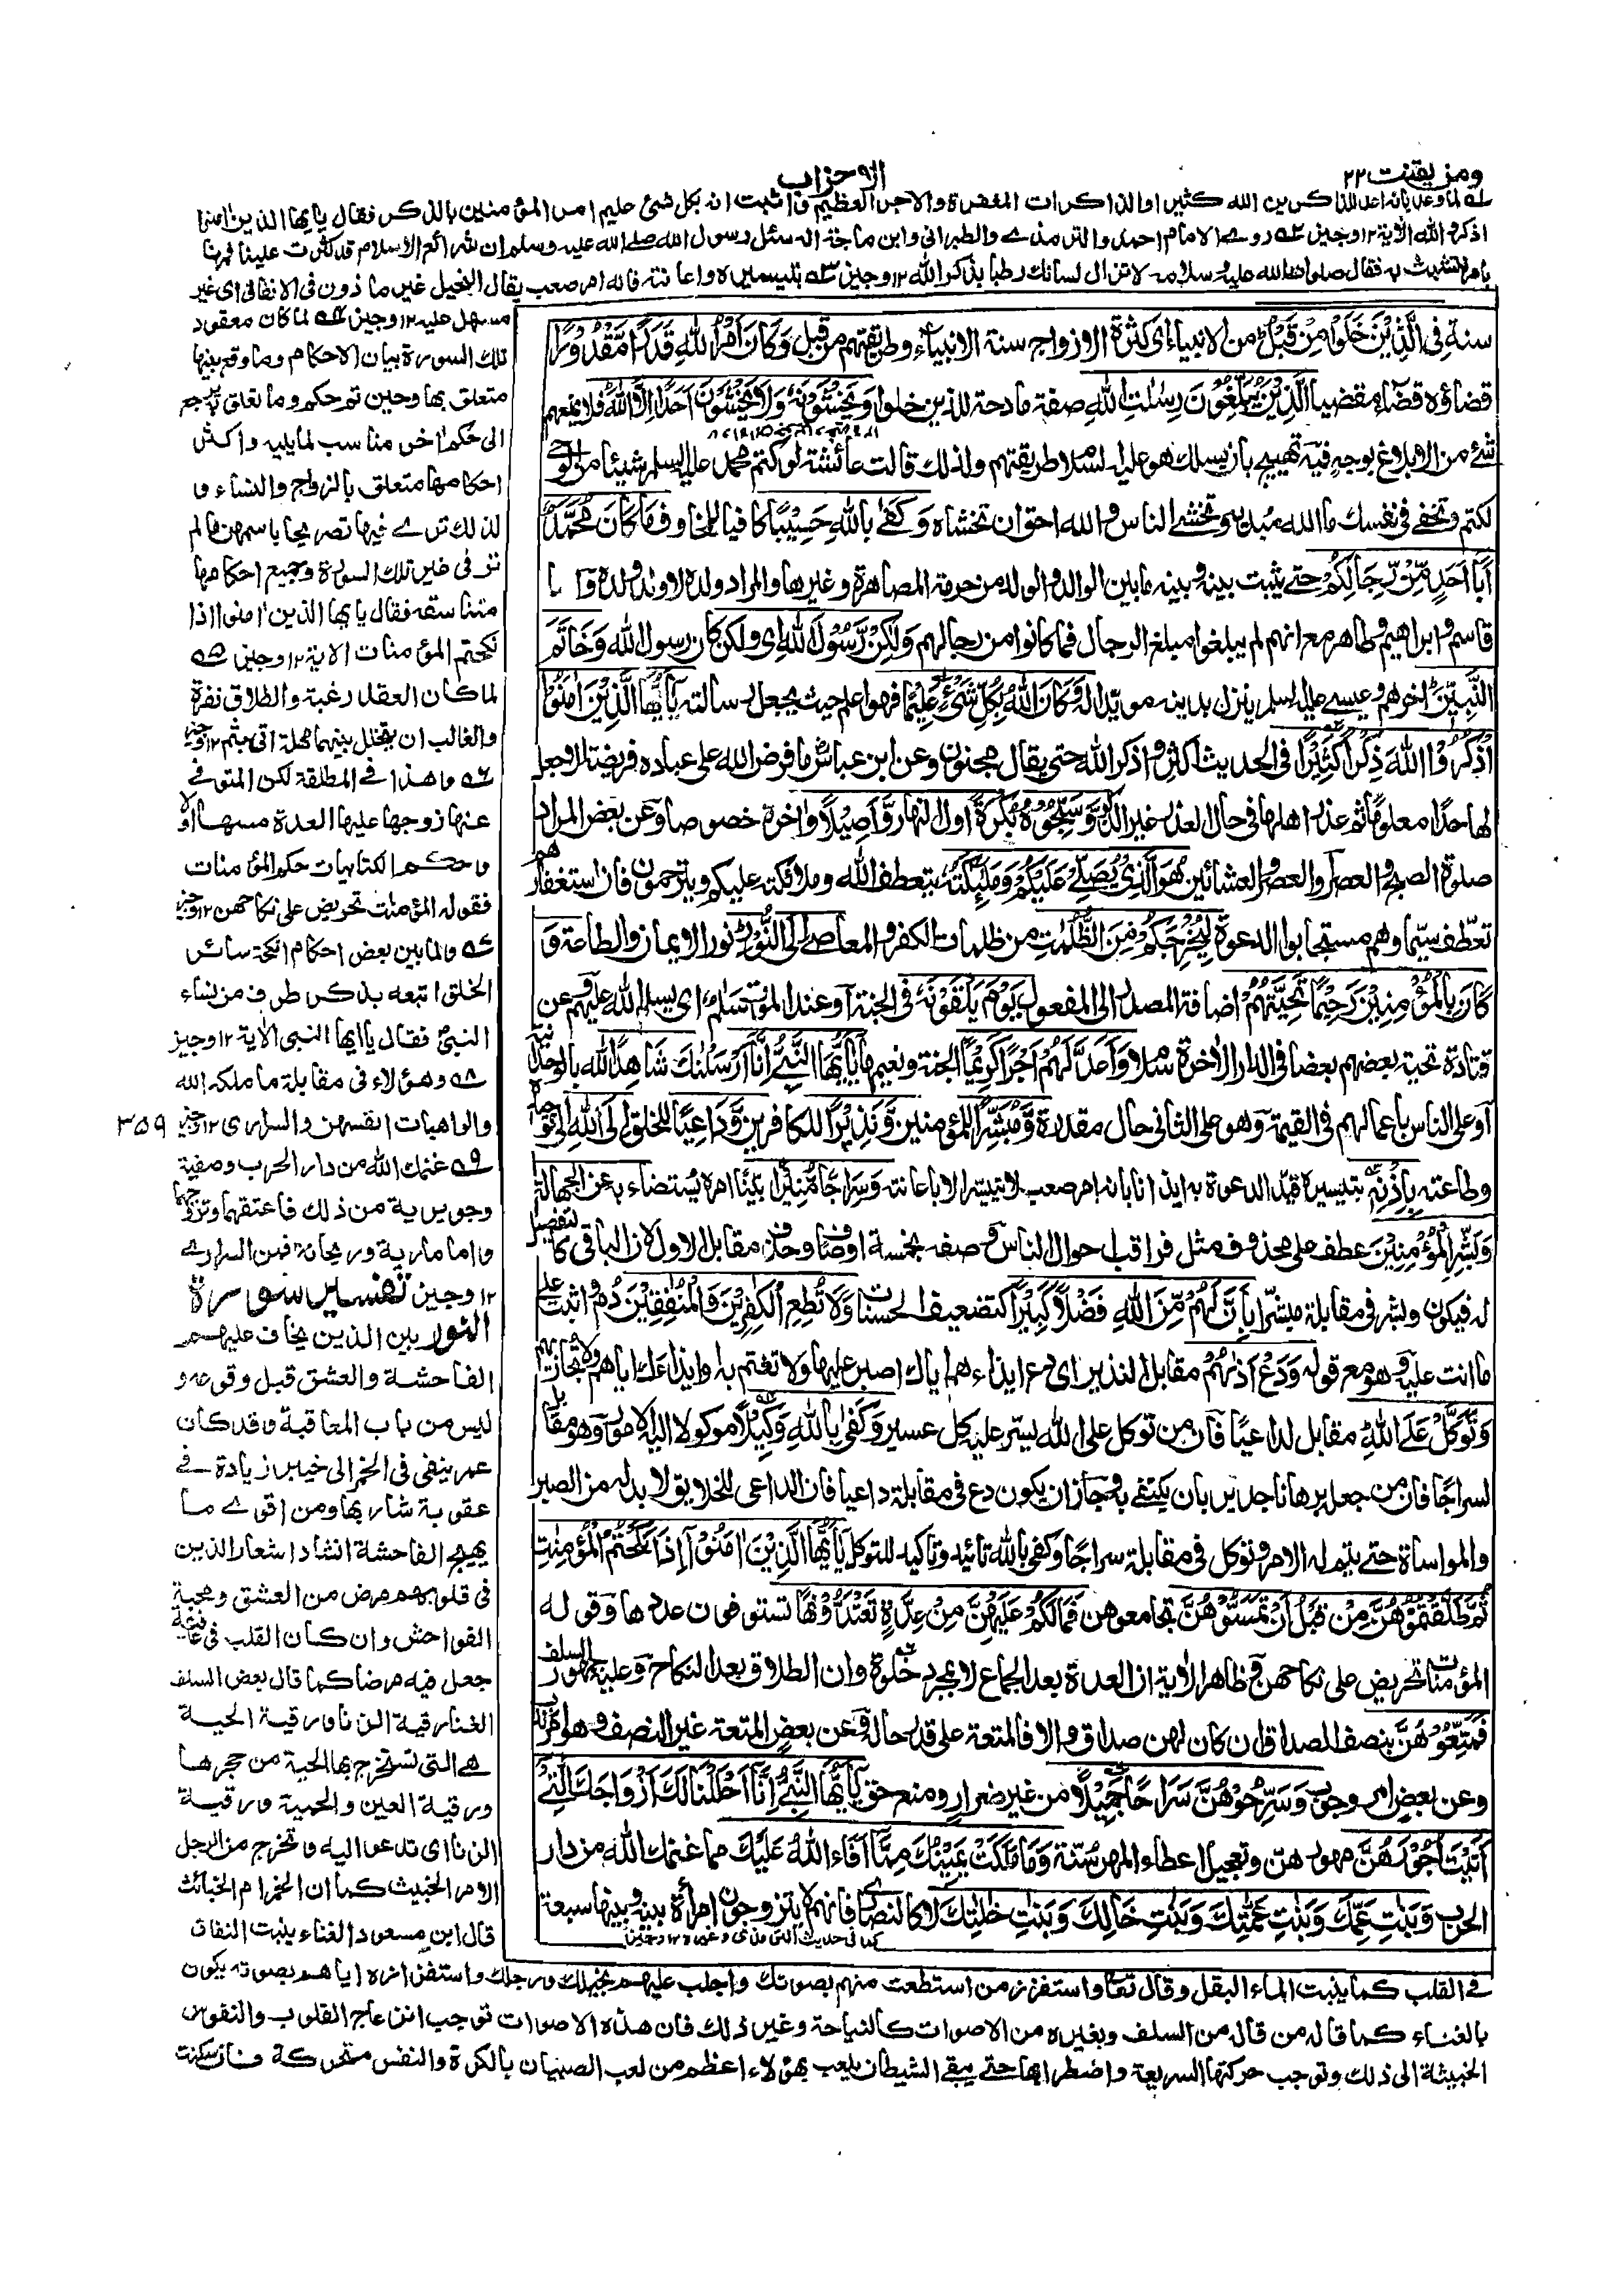 ومن يقنت ٢٢
الاحزاب
له لما وعد بانه اعد للذاكرين الله كثيرا والذاكرات المغفرة والاجر العظيم واثبت انه بكل شئ عليم امر المؤمنين بالذكر فقال يايها الذين امنوا
اذكروا الله الاية ١٢ وجيز روى الامام احمد والترمذى والطبرانى وابن ماجة انه سئل رسول الله صلى الله عليه وسلم ان شرائع الاسلام قد كثرت علينا فمرنا
بامر نتشبث به فقال صلوات الله عليه وسلامه لا تزال لسانك رطبا بذكر الله ١٢ وجيز بتيسيره واعانته فانه امر صعب يقال البخيل غير ماذون فى الانفاق اى غير
سنة فِى الَّذِيْنَ خَلَوْا مِنْ قَبْلُ من الانبياء اى كثرة الازواج سنة الانبياء وطريقتهم من قبل وَكَانَ اَمْرُ اللهِ قَدَرًا مَّقْدُوْرًا
قضاؤه قضاء مقضيا الَّذِيْنَ يُبَلِّغُوْنَ رِسٰلٰتِ اللهِ صفة مادحة للذين خلوا وَيَخْشَوْنَهٗ وَلَا يَخْشَوْنَ اَحَدًا اِلَّا اللهَ فلا يمنعهم
شئ من الابلاغ بوجه فيه تهييج بان يسلك هو عليه السلام طريقتهم ولذلك قالت عائشة لو كتم محمد عليه السلام شيئا من الوحى
لكتم وتخفى فى نفسك ما الله مبديه وتخشى الناس والله احق ان تخشاه وَكَفٰى بِاللهِ حَسِيْبًا كافيا للمخاوف مَا كَانَ مُحَمَّدٌ
اَبَا اَحَدٍ مِّنْ رِّجَالِكُمْ حتى يثبت بينه وبينه ما بين الوالد والولد من حرمة المصاهرة وغيرها والمراد ولده لا ولد ولده و
قاسم وابراهيم وطاهر مع انهم لم يبلغوا مبلغ الرجال فما كانوا من رجالهم وَلٰكِنْ رَّسُوْلَ اللهِ اى ولكن كان رسول الله وَخَاتَمَ
النَّبِيّٖنَ اخرهم وعيسى عليه السلام ينزل بدينه مويدا له وَكَانَ اللهُ بِكُلِّ شَىْءٍ عَلِيْمًا فهو اعلم حيث يجعل رسالته يٰاَيُّهَا الَّذِيْنَ اٰمَنُوا
اذْكُرُوا اللهَ ذِكْرًا كَثِيْرًا فى الحديث اكثروا ذكر الله حتى يقال مجنون وعن ابن عباس ما فرض الله على عباده فريضة الا وجعل
لها حدًا معلوما ثم عذر اهلها فى حال العذر غير الذكر وَسَبِّحُوْهُ بُكْرَةً اول النهار وَّاَصِيْلًا واخره خصوصا وعن بعض المراد
صلوة الصبح والعصر والعصر والعشائين هُوَ الَّذِىْ يُصَلِّىْ عَلَيْكُمْ وَمَلٰئِكَتُهٗ يتعطف الله وملائكته عليكم ويترحمون فان استغفارهم
تعطف سيما وهم مستجابوا الدعوة لِيُخْرِجَكُمْ مِّنَ الظُّلُمٰتِ من ظلمات الكفر والمعاصى اِلَى النُّوْرِ نور الايمان والطاعة وَ
كَانَ بِالْمُؤْمِنِيْنَ رَحِيْمًا تَحِيَّتُهُمْ اضافة المصدر الى المفعول يَوْمَ يَلْقَوْنَهٗ فى الجنة او عند الموت سَلٰمٌ اى يسلم الله عليهم وعن
قتادة تحية بعضهم بعضا فى الدار الاخرة سلام وَاَعَدَّ لَهُمْ اَجْرًا كَرِيْمًا الجنة ونعيمها يٰاَيُّهَا النَّبِىُّ اِنَّا اَرْسَلْنٰكَ شَاهِدًا لله بالوحدانية
او على الناس باعمالهم فى القيمة وهو على الثانى حال مقدرة وَّمُبَشِّرًا للمؤمنين وَّنَذِيْرًا للكافرين وَّدَاعِيًا للخلق اِلَى اللهِ الى توحيده
وطاعته بِاِذْنِهٖ بتيسيره قيد الدعوة به ايذانا بانه امر صعب لا تيسر الا باعانته وَسِرَاجًا مُّنِيْرًا بينا امره يستضاء به عن الجهالة
وَبَشِّرِ الْمُؤْمِنِيْنَ عطف على محذوف مثل فراقب احوال الناس وصفه بخمسة اوصاف وحذف مقابل الاول لان الباقى كالتفصيل
له فيكون وبشر فى مقابلة مبشرا بِاَنَّ لَهُمْ مِّنَ اللهِ فَضْلًا كَبِيْرًا كتضعيف الحسنات وَلَا تُطِعِ الْكٰفِرِيْنَ وَالْمُنٰفِقِيْنَ دُم واثبت على
ما انت عليه وهو مع قوله وَدَعْ اَذٰىهُمْ مقابل النذير اى دع ايذاءهم اياك اصبر عليها ولا تغتم به او ايذاءك اياهم ولا تجازهم
وَتَوَكَّلْ عَلَى اللهِ مقابل لداعيًا فان من توكل على الله يسر عليه كل عسير وَكَفٰى بِاللهِ وَكِيْلًا موكولا اليه الامور وهو مقابل
لسراجًا فان من جعله برهانا جدير بان يكتفى به وجاز ان يكون دع فى مقابلة داعيا فان الداعى للخلايق لا بد له من الصبر
والمواساة حتى يتم له الامر وتوكل فى مقابلة سراجا وكفى بالله تائيد وتاكيد للتوكل يٰاَيُّهَا الَّذِيْنَ اٰمَنُوْا اِذَا نَكَحْتُمُ الْمُؤْمِنٰتِ
ثُمَّ طَلَّقْتُمُوْهُنَّ مِنْ قَبْلِ اَنْ تَمَسُّوْهُنَّ تجامعوهن فَمَا لَكُمْ عَلَيْهِنَّ مِنْ عِدَّةٍ تَعْتَدُّوْنَهَا تستوفون عددها وقوله
المؤمنات تحريض على نكاحهن وظاهر الاية ان العدة بعد الجماع لا بمجرد خلوة وان الطلاق بعد النكاح وعليه جمهور السلف
فَمَتِّعُوْهُنَّ بنصف الصداق ان كان لهن صداق والا فالمتعة على قدر حاله وعن بعض المتعة غير النصف وهو امر ندب
وعن بعض امر وجوب وَسَرِّحُوْهُنَّ سَرَاحًا جَمِيْلًا من غير ضرار ومنع حق يٰاَيُّهَا النَّبِىُّ اِنَّا اَحْلَلْنَا لَكَ اَزْوَاجَكَ الّٰتِىْ
اٰتَيْتَ اُجُوْرَهُنَّ مهورهن وتعجيل اعطاء المهر سنة وَمَا مَلَكَتْ يَمِيْنُكَ مِمَّا اَفَاءَ اللهُ عَلَيْكَ مما غنمك الله من دار
الحرب وَبَنٰتِ عَمِّكَ وَبَنٰتِ عَمّٰتِكَ وَبَنٰتِ خَالِكَ وَبَنٰتِ خٰلٰتِكَ لا كالنصارى فانهم لا يتزوجون امرأة بينه وبينها سبعة
كما فى حديث الترمذى وغيره ١٢ وجيز
مسهل عليه ١٢ وجيز لما كان معقود
تلك السورة بيان الاحكام وما وقع بينها
متعلق بها وحين تم حكم وما تعلق به رجع
الى حكم اخر مناسب لما يليه واكثر
احكامها متعلق بالزواج والنساء و
لذلك ترى فيها تصريحا باسمهن ما لم
تر فى غير تلك السورة وجميع احكامها
متناسقة فقال يايها الذين امنوا اذا
نكحتم المؤمنات الاية ١٢ وجيز
لما كان العقل رغبة والطلاق نفرة
والغالب ان يتخلل بينهما مهلة اتى بثم ١٢ وجيز
وهذا فى المطلقة لكن المتوفى
عنها زوجها عليها العدة مسها او لا
وحكم الكتابيات حكم المؤمنات
فقوله المؤمنات تحريض على نكاحهن ١٢ وجيز
ولما بين بعض احكام انكحة سائر
الخلق اتبعه بذكر طرف من نساء
النبى فقال ياايها النبى الاية ١٢ وجيز
وهؤلاء فى مقابلة ما ملكه الله
والواهبات انفسهن والسرارى ١٢ وجيز
٣٥٩
غنمك الله من دار الحرب وصفية
وجويرية من ذلك فاعتقهما وتزوجهما
واما مارية وريحانة فمن السرارى
١٢ وجيز تفسير سورة
النور بين الذين يخاف عليهم
الفاحشة والعشق قبل وقوعه و
ليس من باب المعاقبة وقد كان
عمر ينفى فى الخمر الى خيبر زيادة فى
عقوبة شاربها ومن اقوى ما
يهيج الفاحشة انشاد اشعار الذين
فى قلوبهم مرض من العشق ومحبة
الفواحش وان كان القلب فى عافية
جعل فيه مرضا كما قال بعض السلف
الغنا رقية الزنا ورقية الحية
هى التى تستخرج بها الحية من جحرها
ورقية العين والحمية ورقية
الزنا اى تدعو اليه وتخرج من الرجل
الامر الخبيث كما ان الخمر ام الخبائث
قال ابن مسعود الغناء ينبت النفاق
فى القلب كما ينبت الماء البقل وقال تعا واستفزز من استطعت منهم بصوتك واجلب عليهم بخيلك ورجلك واستفزازه اياهم بصوته يكون
بالغناء كما قاله من قاله من السلف وبغيره من الاصوات كالنياحة وغير ذلك فان هذه الاصوات توجب انزعاج القلوب والنفوس
الخبيثة الى ذلك وتوجب حركتها السريعة واضطرابها حتى يبقى الشيطان يلعب بهؤلاء اعظم من لعب الصبيان بالكرة والنفس متحركة فان سكنت